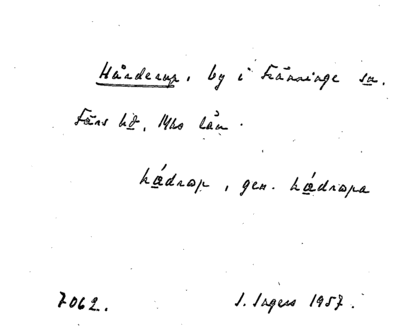 Hårderup, by i Fränninge sn.
Färs hd, Mhs län.
hádrop, gen. hádropa
7062. I. Ingers 1957.